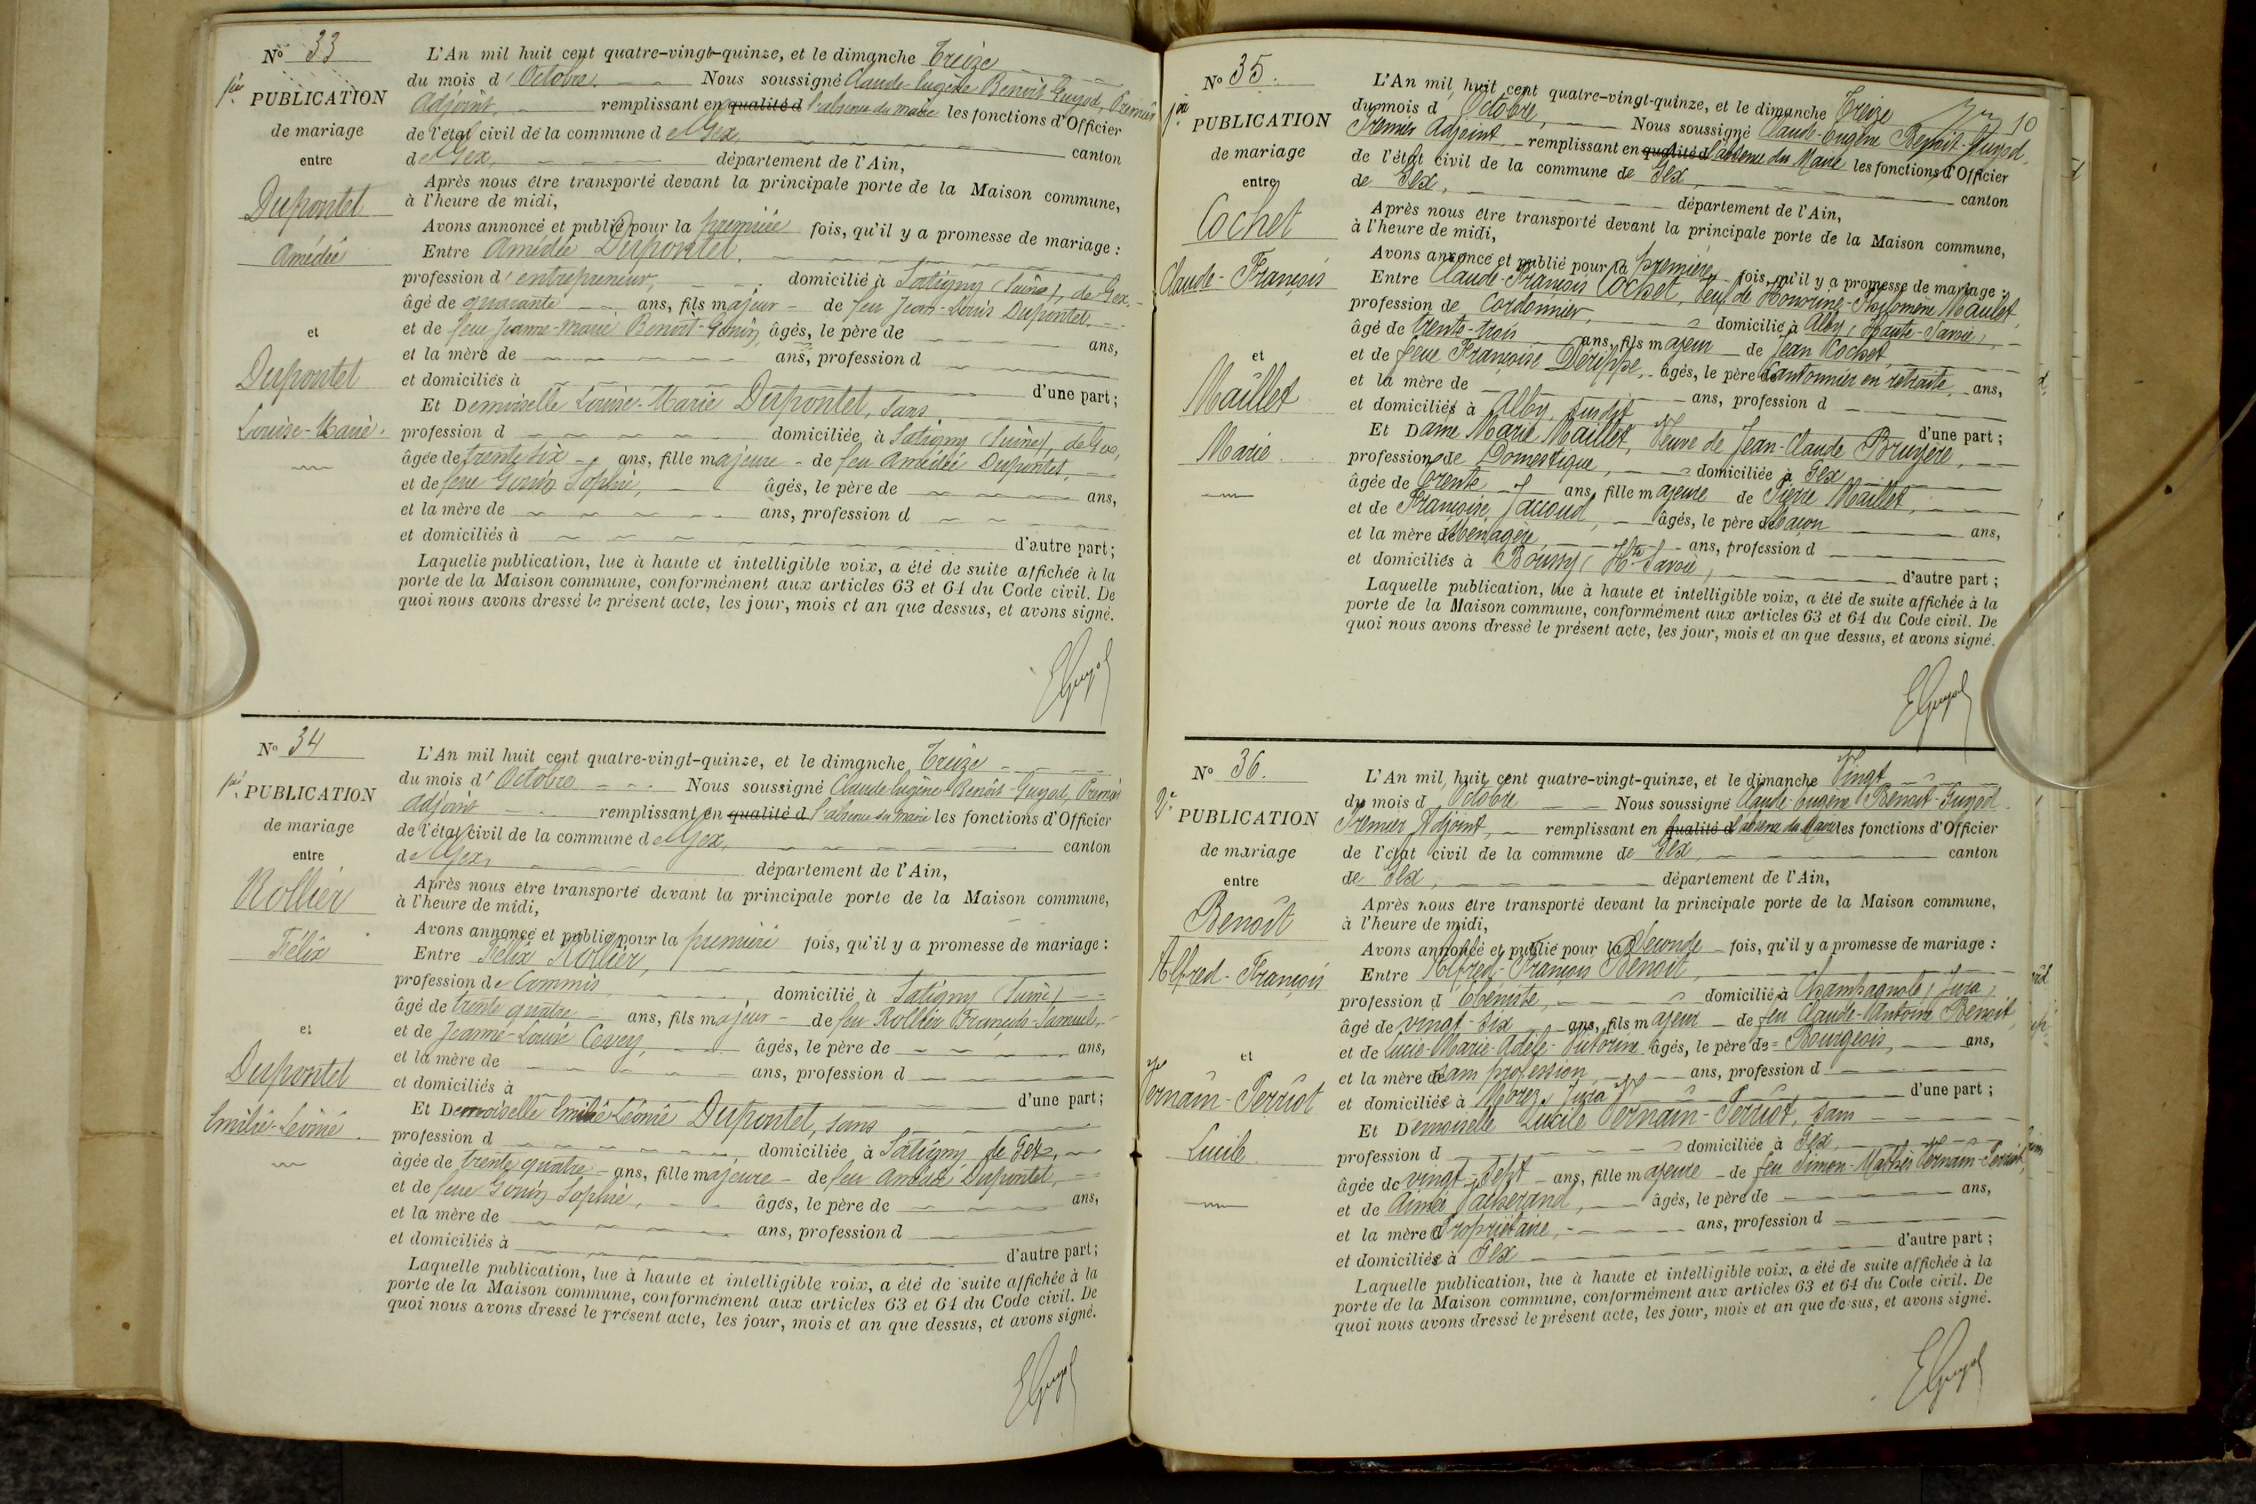 N° 33
1re PUBLICATION
de mariage
entre
Dupontet
Amédée
et
Dupontet
Louise-Marie.
L'An mil huit cent quatre-vingt-quinze, et le dimanche Treize
du mois d'Octobre. Nous soussigné Claude-Eugène Benoit-Guyod, Premier
Adjoint, remplissant en qualité d l'absence du Maire les fonctions d'Officier
de l'état civil de la commune de Gex, canton
de Gex, département de l'Ain,
Après nous être transporté devant la principale porte de la Maison commune,
à l'heure de midi,
Avons annoncé et publié pour la première fois, qu'il y a promesse de mariage :
Entre Amédée Dupontet,
profession d'entrepreneur, domicilié à Satigny (Suisse), de Gex,
âgé de quarante ans, fils majeur de feu Jean-Louis Dupontet
et de feue Jeanne-Marie Benoit-Gonin, âgés, le père de ans,
et la mère de ans, profession d
et domiciliés à d'une part ;
Et Demoiselle Louise-Marie Dupontet, sans
profession d domiciliée à Satigny (Suisse), de Gex,
âgée de trente six ans, fille majeure de feu Amédée Dupontet,
et de feue Gonin Sophie, âgés, le père de ans,
et la mère de ans, profession d
et domiciliés à d'autre part ;
Laquelle publication, lue à haute et intelligible voix, a été de suite affichée à la
porte de la Maison commune, conformément aux articles 63 et 64 du Code civil. De
quoi nous avons dressé le présent acte, les jour, mois et an que dessus, et avons signé.
EGuyod
N° 34
1re PUBLICATION
de mariage
entre
Rollier
Félix
et
Dupontet
Emilie-Léonie
L'An mil huit cent quatre-vingt-quinze, et le dimanche Treize
du mois d'Octobre Nous soussigné Claude-Eugène Benoit-Guyod, Premier
Adjoint remplissant en qualité d l'absence du Maire les fonctions d'Officier
de l'état civil de la commune de Gex, canton
de Gex, département de l'Ain,
Après nous être transporté devant la principale porte de la Maison commune,
à l'heure de midi,
Avons annoncé et publié pour la première fois, qu'il y a promesse de mariage :
Entre Félix Rollier,
profession de Commis domicilié à Satigny (Suisse)
âgé de trente quatre ans, fils majeur de feu Rollier François-Samuel,
et de Jeanne-Louise Covey, âgés, le père de ans,
et la mère de ans, profession d
et domiciliés à d'une part ;
Et Demoiselle Emilie-Léonie Dupontet, sans
profession d domiciliée à Satigny de Gex,
âgée de trente quatre ans, fille majeure de feu Amédée Dupontet,
et de feue Gonin Sophie, âgés, le père de ans,
et la mère de ans, profession d
et domiciliés à d'autre part ;
Laquelle publication, lue à haute et intelligible voix, a été de suite affichée à la
porte de la Maison commune, conformément aux articles 63 et 64 du Code civil. De
quoi nous avons dressé le présent acte, les jour, mois et an que dessus, et avons signé.
EGuyod
10
N° 35.
1re PUBLICATION
de mariage
entre
Cochet
Claude-François
et
Maillet
Marie
L'An mil huit cent quatre-vingt-quinze, et le dimanche Treize
du mois d'Octobre, Nous soussigné Claude-Eugène Benoit-Guyod,
Premier Adjoint remplissant en qualité d l'absence du Maire les fonctions d'Officier
de l'état civil de la commune de Gex, canton
de Gex, département de l'Ain,
Après nous être transporté devant la principale porte de la Maison commune,
à l'heure de midi,
Avons annoncé et publié pour la première fois, qu'il y a promesse de mariage :
Entre Claude-François Cochet, Veuf de Honorine-Philomène Maulet,
profession de Cordonnier, domicilié à Alby (Haute-Savoie),
âgé de trente-trois ans, fils majeur de Jean Cochet
et de feue Françoise Dérippe, âgés, le père de Cantonnier en retraite, ans,
et la mère de ans, profession d
et domiciliés à Alby, susdit d'une part ;
Et Dame Marie Maillet, Veuve de Jean-Claude Bruyère,
profession de Domestique, domiciliée à Gex
âgée de trente ans, fille majeure de Pierre Maillet,
et de Françoise Jaccoud, âgés, le père de Maçon ans,
et la mère de Ménagère, ans, profession d
et domiciliés à Boussy (Hte Savoie), d'autre part ;
Laquelle publication, lue à haute et intelligible voix, a été de suite affichée à la
porte de la Maison commune, conformément aux articles 63 et 64 du Code civil. De
quoi nous avons dressé le présent acte, les jour, mois et an que dessus, et avons signé.
EGuyod
N° 36.
2e PUBLICATION
de mariage
entre
Benoît
Alfred-François
et
Vernain-Perriot
Lucile
L'An mil huit cent quatre-vingt-quinze, et le dimanche Vingt
du mois d Octobre Nous soussigné Claude-Eugène Benoit-Guyod
Premier Adjoint, remplissant en qualité d l'absence du Maire les fonctions d'Officier
de l'état civil de la commune de Gex, canton
de Gex, département de l'Ain,
Après nous être transporté devant la principale porte de la Maison commune,
à l'heure de midi,
Avons annoncé et publié pour la Seconde fois, qu'il y a promesse de mariage :
Entre Alfred-François Benoît,
profession d'Ébéniste, domicilié à Champagnole, Jura,
âgé de vingt-six ans, fils majeur de feu Claude-Antoine Benoit,
et de Lucie-Marie-Adèle-Victorine âgés, le père de Bourgeois, ans,
et la mère de sans profession, ans, profession d
et domiciliés à Morez, Jura d'une part ;
Et Demoiselle Lucile Vernain-Perriot, sans
profession d domiciliée à Gex,
âgée de vingt-sept ans, fille majeure de feu Simon-Mathieu Vernain-Perriot,
et de Aimée âgés, le père de ans,
et la mère Propriétaire, ans, profession d
et domiciliés à Gex d'autre part ;
Laquelle publication, lue à haute et intelligible voix, a été de suite affichée à la
porte de la Maison commune, conformément aux articles 63 et 64 du Code civil. De
quoi nous avons dressé le présent acte, les jour, mois et an que dessus, et avons signé.
EGuyod